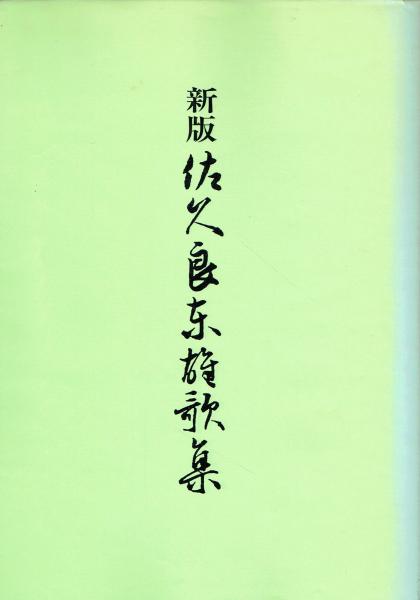 新版 佐久良东雄歌集